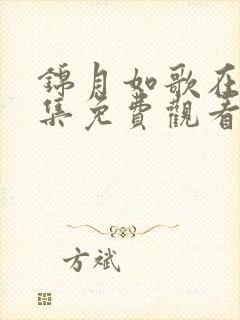 錦月如歌在
集免費觀看
方斌